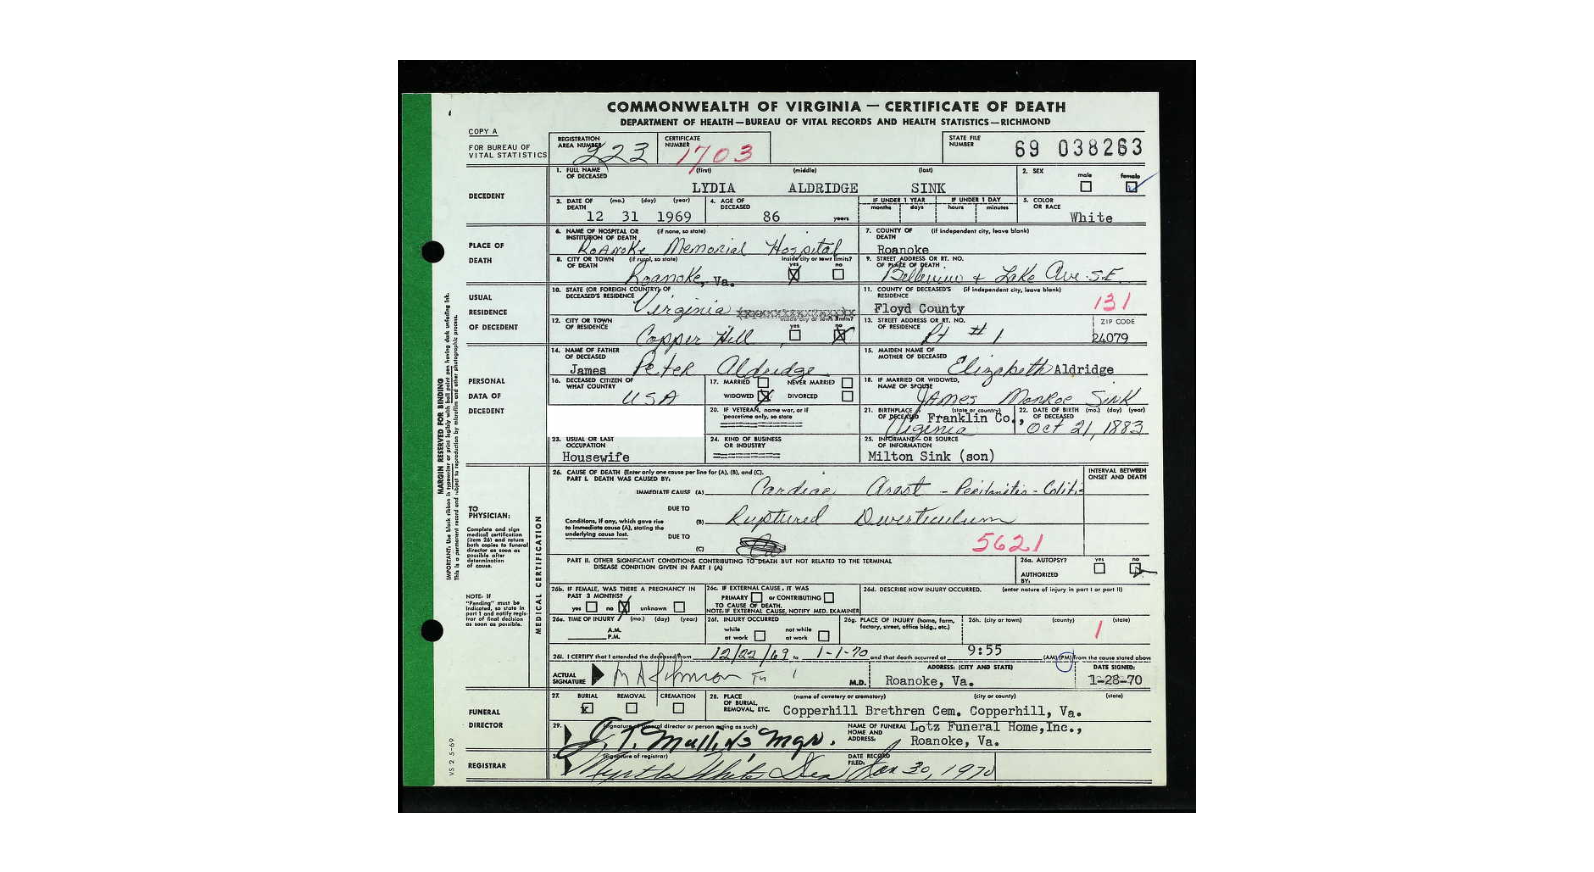 COMMONWEALTH OF VIRGINIA — CERTIFICATE OF DEATH
DEPARTMENT OF HEALTH—BUREAU OF VITAL RECORDS AND HEALTH STATISTICS—RICHMOND
COPY A
FOR BUREAU OF VITAL STATISTICS
REGISTRATION AREA NUMBER 223
CERTIFICATE NUMBER 1703
STATE FILE NUMBER 69 038263
DECEDENT
1. FULL NAME OF DECEASED (first) (middle) (last)
LYDIA ALDRIDGE SINK
2. SEX male female
3. DATE OF DEATH (mo.) (day) (year) 12 31 1969
4. AGE OF DECEASED 86 years
IF UNDER 1 YEAR months days
IF UNDER 1 DAY hours minutes
5. COLOR OR RACE White
PLACE OF DEATH
6. NAME OF HOSPITAL OR INSTITUTION OF DEATH (if none, so state)
Roanoke Memorial Hospital
7. COUNTY OF DEATH (if independent city, leave blank)
Roanoke
8. CITY OR TOWN OF DEATH (if rural, so state) inside city or town limits? yes no
Roanoke, Va.
9. STREET ADDRESS OR RT. NO. OF PLACE OF DEATH
& Lake Ave. S.E.
USUAL RESIDENCE OF DECEDENT
10. STATE (OR FOREIGN COUNTRY) OF DECEASED'S RESIDENCE
Virginia
11. COUNTY OF DECEASED'S RESIDENCE (if independent city, leave blank)
Floyd County 131
12. CITY OR TOWN OF RESIDENCE yes no
Copper Hill
13. STREET ADDRESS OR RT. NO. OF RESIDENCE
Rt #1
ZIP CODE 24079
PERSONAL DATA OF DECEDENT
14. NAME OF FATHER OF DECEASED
James Peter Aldridge
15. MAIDEN NAME OF MOTHER OF DECEASED
Elizabeth Aldridge
16. DECEASED CITIZEN OF WHAT COUNTRY
USA
17. MARRIED NEVER MARRIED
WIDOWED DIVORCED
18. IF MARRIED OR WIDOWED, NAME OF SPOUSE
James Monroe Sink
20. IF VETERAN, name war, or if peacetime only, so state
21. BIRTHPLACE OF DECEASED (state or country)
Franklin Co.,
Virginia
22. DATE OF BIRTH OF DECEASED (mo.) (day) (year)
Oct 21, 1883
23. USUAL OR LAST OCCUPATION
Housewife
24. KIND OF BUSINESS OR INDUSTRY
25. INFORMANT OR SOURCE OF INFORMATION
Milton Sink (son)
MARGIN RESERVED FOR BINDING
TO PHYSICIAN:
Complete and sign medical certification (item 26) and return both copies to funeral director as soon as possible after determination of cause.
NOTE: IF "Pending" must be indicated, so state in part I and notify registrar of final decision as soon as possible.
MEDICAL CERTIFICATION
26. CAUSE OF DEATH (Enter only one cause per line for (A), (B), and (C).
PART I. DEATH WAS CAUSED BY:
INTERVAL BETWEEN ONSET AND DEATH
IMMEDIATE CAUSE (A) Cardiac Arest - Peritonitis - Colitis
DUE TO
Conditions, if any, which gave rise to immediate cause (A), stating the underlying cause last.
(B) Ruptured Diverticulum
DUE TO
(C)
5621
PART II. OTHER SIGNIFICANT CONDITIONS CONTRIBUTING TO DEATH BUT NOT RELATED TO THE TERMINAL DISEASE CONDITION GIVEN IN PART I (A)
26a. AUTOPSY? yes no
AUTHORIZED BY:
26b. IF FEMALE, WAS THERE A PREGNANCY IN PAST 3 MONTHS?
yes no unknown
26c. IF EXTERNAL CAUSE, IT WAS
PRIMARY or CONTRIBUTING
TO CAUSE OF DEATH.
NOTE: IF EXTERNAL CAUSE, NOTIFY MED. EXAMINER
26d. DESCRIBE HOW INJURY OCCURRED. (enter nature of injury in part I or part II)
26e. TIME OF INJURY (mo.) (day) (year)
A.M.
P.M.
26f. INJURY OCCURRED
while at work not while at work
26g. PLACE OF INJURY (home, farm, factory, street, office bldg., etc.)
26h. (city or town) (county) (state)
1
26i. I CERTIFY that I attended the deceased from 12/22/69 to 1-1-70 and that death occurred at 9:55 (AM) (PM) from the cause stated above
ACTUAL SIGNATURE M.D.
ADDRESS: (CITY AND STATE)
Roanoke, Va.
DATE SIGNED:
1-28-70
FUNERAL DIRECTOR
27. BURIAL REMOVAL CREMATION
28. PLACE OF BURIAL, REMOVAL, ETC. (name of cemetery or crematory) (city or county) (state)
Copperhill Brethren Cem. Copperhill, Va.
29. (signature of funeral director or person acting as such)
J. T. Mullins Mgr.
NAME OF FUNERAL HOME AND ADDRESS:
Lotz Funeral Home, Inc.,
Roanoke, Va.
REGISTRAR
(signature of registrar)
Myrtle White
DATE RECORD FILED: Jan 30, 1970
VS 2 5-69